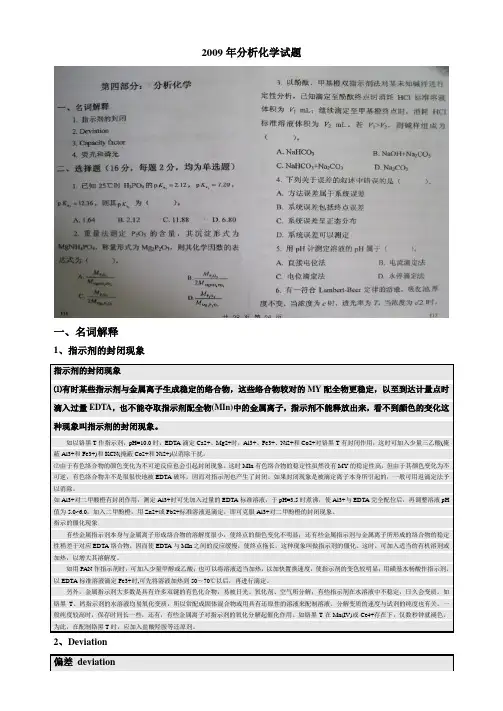 2009年分析化学试题
第四部分： 分析化学
一、名词解释
1. 指示剂的封闭
2. Deviation
3. Capacity factor
4. 荧光和磷光
二、选择题（16分，每题2分，均为单选题）
1. 已知25℃时 H₃PO₄的pKa₁=2.12，pKa₂=7.20，
pKa₃=12.36，则其pKb₃为（ ）。
A. 1.64 B. 2.12 C. 11.88 D. 6.80
2. 重量法测定 P₂O₅的含量，其沉淀形式为
MgNH₄PO₄，称量形式为Mg₂P₂O₇，则其化学因数的表
达式为（ ）。
3. 以酚酞、甲基橙双指示剂法对某未知碱样进行
定性分析。已知滴定至酚酞终点时消耗 HCl 标准溶液
体积为 V₁ mL，继续滴定至甲基橙终点时，消耗 HCl
标准溶液体积为 V₂ mL，若 V₂>V₁，则碱样组成为
（ ）。
A. NaHCO₃ B. NaOH+Na₂CO₃
C. NaHCO₃+Na₂CO₃ D. Na₂CO₃
4. 下列关于误差的叙述中错误的是（ ）。
A. 方法误差属于系统误差
B. 系统误差包括终点误差
C. 系统误差呈正态分布
D. 系统误差可以测定
5. 用pH计测定溶液的pH属于（ ）。
A. 直接电位法 B. 电流滴定法
C. 电位滴定法 D. 永停滴定法
6. 有一符合 Lambert-Beer 定律的溶液，吸收池厚
度不变，当浓度为 c 时，透光率为 T，当浓度为 c/2 时，
一、名词解释
1、指示剂的封闭现象
指示剂的封闭现象
⑴有时某些指示剂与金属离子生成稳定的络合物，这些络合物较对的 MY 配合物更稳定，以至到达计量点时
滴入过量 EDTA，也不能夺取指示剂配合物(MIn)中的金属离子，指示剂不能释放出来，看不到颜色的变化这
种现象叫指示剂的封闭现象。
如以铬黑T作指示剂，pH=10.0时，EDTA滴定Ca2+、Mg2+时，Al3+、Fe3+、Ni2+和Co2+对铬黑T有封闭作用，这时可加入少量三乙醇(掩
蔽Al3+和Fe3+)和KCN(掩蔽Co2+和Ni2+)以消除干扰。
⑵由于有色络合物的颜色变化为不可逆反应也会引起封闭现象，这时MIn有色络合物的稳定性虽然没有MY的稳定性高，但由于其颜色变化为不
可逆，有色络合物并不是很快地被EDTA破坏，因而对指示剂也产生了封闭。如果封闭现象是被滴定离子本身所引起的，一般可用返滴定法予
以消除。
如Al3+对二甲酚橙有封闭作用，测定Al3+时可先加入过量的EDTA标准溶液，于pH=3.5时煮沸，使Al3+与EDTA完全配位后，再调整溶液pH
值为5.0~6.0，加入二甲酚橙，用Zn2+或Pb2+标准溶液返滴定，即可克服Al3+对二甲酚橙的封闭现象。
指示的僵化现象
有些金属指示剂本身与金属离子形成络合物的溶解度很小，使终点的颜色变化不明显；还有些金属指示剂与金属离子所形成的络合物的稳定
性稍差于对应EDTA络合物，因而使EDTA与MIn之间的反应缓慢，使终点拖长，这种现象叫做指示剂的僵化。这时，可加入适当的有机溶剂或
加热，以增大其溶解度。
如用PAN作指示剂时，可加入少量甲醇或乙醇；也可以将溶液适当加热，以加快置换速度，使指示剂的变色较明显；用磺基水杨酸作指示剂，
以EDTA标准溶液滴定Fe3+时，可先将溶液加热到50～70℃以后，再进行滴定。
另外，金属指示剂大多数是具有许多双键的有色化合物，易被日光、氧化剂、空气所分解，有些指示剂在水溶液中不稳定，日久会变质。如
铬黑T、钙指示剂的水溶液均易氧化变质，所以常配成固体混合物或用具有还原性的溶液来配制溶液。分解变质的速度与试剂的纯度也有关，一
般纯度较高时，保存时间长一些。还有，有些金属离子对指示剂的氧化分解起催化作用，如铬黑T在Mn(IV)或Ce4+存在下，仅数秒钟就褪色，
为此，在配制铬黑T时，应加入盐酸羟胺等还原剂。
2、Deviation
偏差 deviation